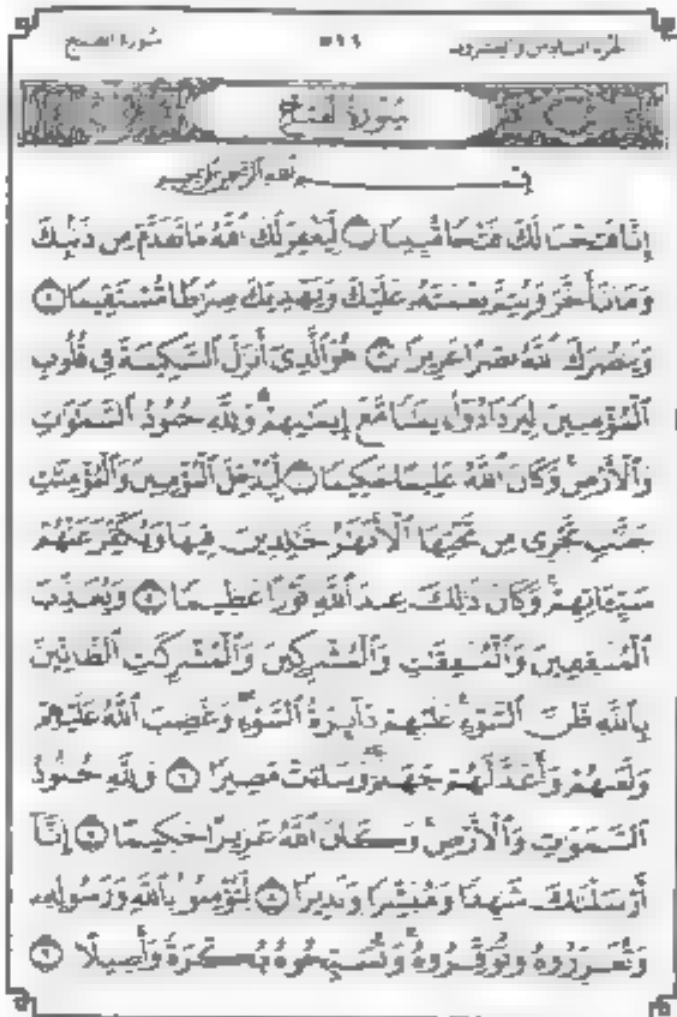 الجزء السادس والعشرون ٥١١ سُورَةُ الفَتْح
سُورَةُ الفَتْحِ
بِسْمِ اللَّهِ الرَّحْمَٰنِ الرَّحِيمِ
إِنَّا فَتَحْنَا لَكَ فَتْحًا مُّبِينًا ١ لِّيَغْفِرَ لَكَ ٱللَّهُ مَا تَقَدَّمَ مِن ذَنۢبِكَ
وَمَا تَأَخَّرَ وَيُتِمَّ نِعْمَتَهُۥ عَلَيْكَ وَيَهْدِيَكَ صِرَٰطًا مُّسْتَقِيمًا ٢
وَيَنصُرَكَ ٱللَّهُ نَصْرًا عَزِيزًا ٣ هُوَ ٱلَّذِىٓ أَنزَلَ ٱلسَّكِينَةَ فِى قُلُوبِ
ٱلْمُؤْمِنِينَ لِيَزْدَادُوٓا۟ إِيمَٰنًا مَّعَ إِيمَٰنِهِمْ ۗ وَلِلَّهِ جُنُودُ ٱلسَّمَٰوَٰتِ
وَٱلْأَرْضِ ۚ وَكَانَ ٱللَّهُ عَلِيمًا حَكِيمًا ٤ لِّيُدْخِلَ ٱلْمُؤْمِنِينَ وَٱلْمُؤْمِنَٰتِ
جَنَّٰتٍ تَجْرِى مِن تَحْتِهَا ٱلْأَنْهَٰرُ خَٰلِدِينَ فِيهَا وَيُكَفِّرَ عَنْهُمْ
سَيِّـَٔاتِهِمْ ۚ وَكَانَ ذَٰلِكَ عِندَ ٱللَّهِ فَوْزًا عَظِيمًا ٥ وَيُعَذِّبَ
ٱلْمُنَٰفِقِينَ وَٱلْمُنَٰفِقَٰتِ وَٱلْمُشْرِكِينَ وَٱلْمُشْرِكَٰتِ ٱلظَّآنِّينَ
بِٱللَّهِ ظَنَّ ٱلسَّوْءِ ۚ عَلَيْهِمْ دَآئِرَةُ ٱلسَّوْءِ ۖ وَغَضِبَ ٱللَّهُ عَلَيْهِمْ
وَلَعَنَهُمْ وَأَعَدَّ لَهُمْ جَهَنَّمَ ۖ وَسَآءَتْ مَصِيرًا ٦ وَلِلَّهِ جُنُودُ
ٱلسَّمَٰوَٰتِ وَٱلْأَرْضِ ۚ وَكَانَ ٱللَّهُ عَزِيزًا حَكِيمًا ٧ إِنَّآ
أَرْسَلْنَٰكَ شَٰهِدًا وَمُبَشِّرًا وَنَذِيرًا ٨ لِّتُؤْمِنُوا۟ بِٱللَّهِ وَرَسُولِهِۦ
وَتُعَزِّرُوهُ وَتُوَقِّرُوهُ ۚ وَتُسَبِّحُوهُ بُكْرَةً وَأَصِيلًا ٩